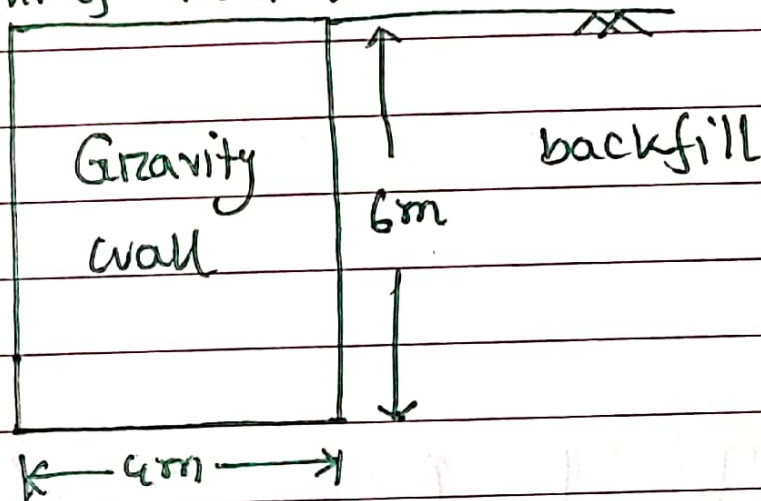 Gravity
wall
6m
backfill
4m